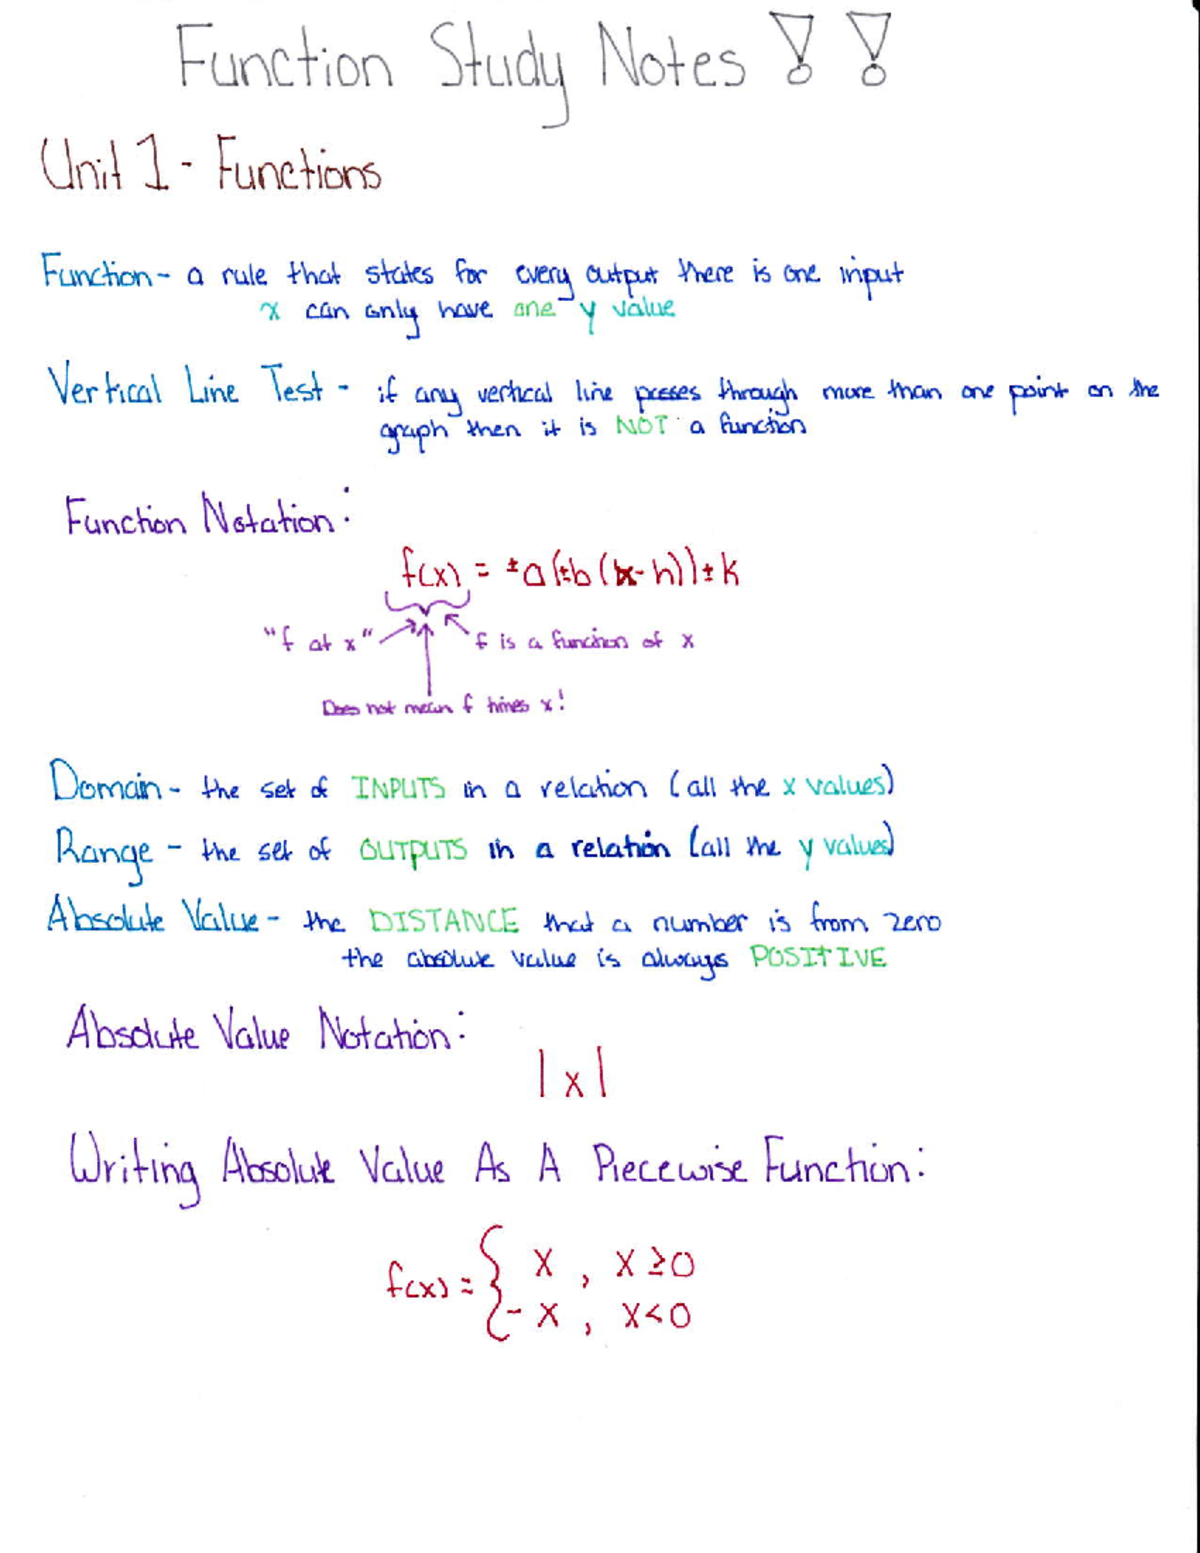 Function Study Notes!!
Unit 1 - Functions
Function - a rule that states for every output there is one input
x can only have one y value
Vertical Line Test - if any vertical line passes through more than one point on the
graph then it is NOT a function
Function Notation:
f(x) = ±a(±b(x-h))±k
"f at x" f is a function of x
Does not mean f times x!
Domain - the set of INPUTS in a relation (all the x values)
Range - the set of OUTPUTS in a relation (all the y values)
Absolute Value - the DISTANCE that a number is from zero
the absolute value is always POSITIVE
Absolute Value Notation:
|x|
Writing Absolute Value As A Piecewise Function:
f(x) = { x , x ≥ 0
- x , x < 0